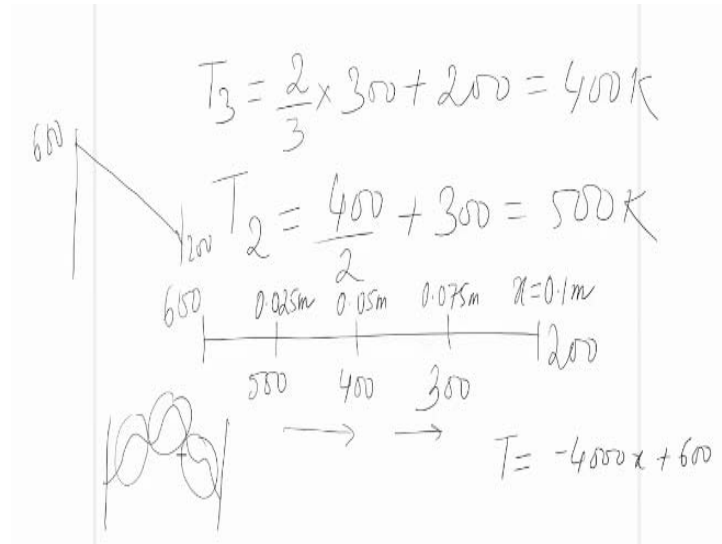 T₃ = 2/3 × 300 + 200 = 400K
600
T₂ = 400/2 + 300 = 500K
200
600 0.025m 0.05m 0.075m x=0.1m
200
500 400 300
T = -4000x + 600